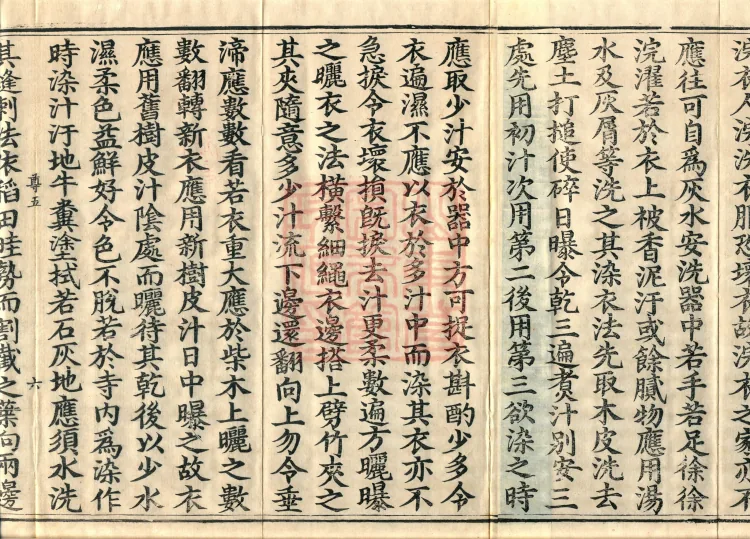 應往可自爲灰水安洗器中若手若足徐徐
浣濯若於衣上被香泥汙或餘膩物應用湯
水及灰屑等洗之其染衣法先取木皮洗去
塵土打搥使碎日曝令乾三遍煑汁別安三
處先用初汁次用第二後用第三欲染之時
應取少汁安於器中方可捉衣斟酌少多令
衣遍濕不應以衣於多汁中而染其衣亦不
急捩令衣壞損旣捩去汁更柔數遍方曬曝
之曬衣之法橫繫細繩衣邊搭上劈竹夾之
其夾隨意多少汁流下邊還翻向上勿令垂
渧應數數看若衣重大應於柴木上曬之數
數翻轉新衣應用新樹皮汁日中曝之故衣
應用舊樹皮汁陰處而曬待其乾後以少水
濕柔色益鮮好令色不脫若於寺內爲染作
時染汁汙地牛糞塗拭若石灰地應須水洗
尊五 六
其縫刺法依稻田畦勢而割截之葉向兩邊